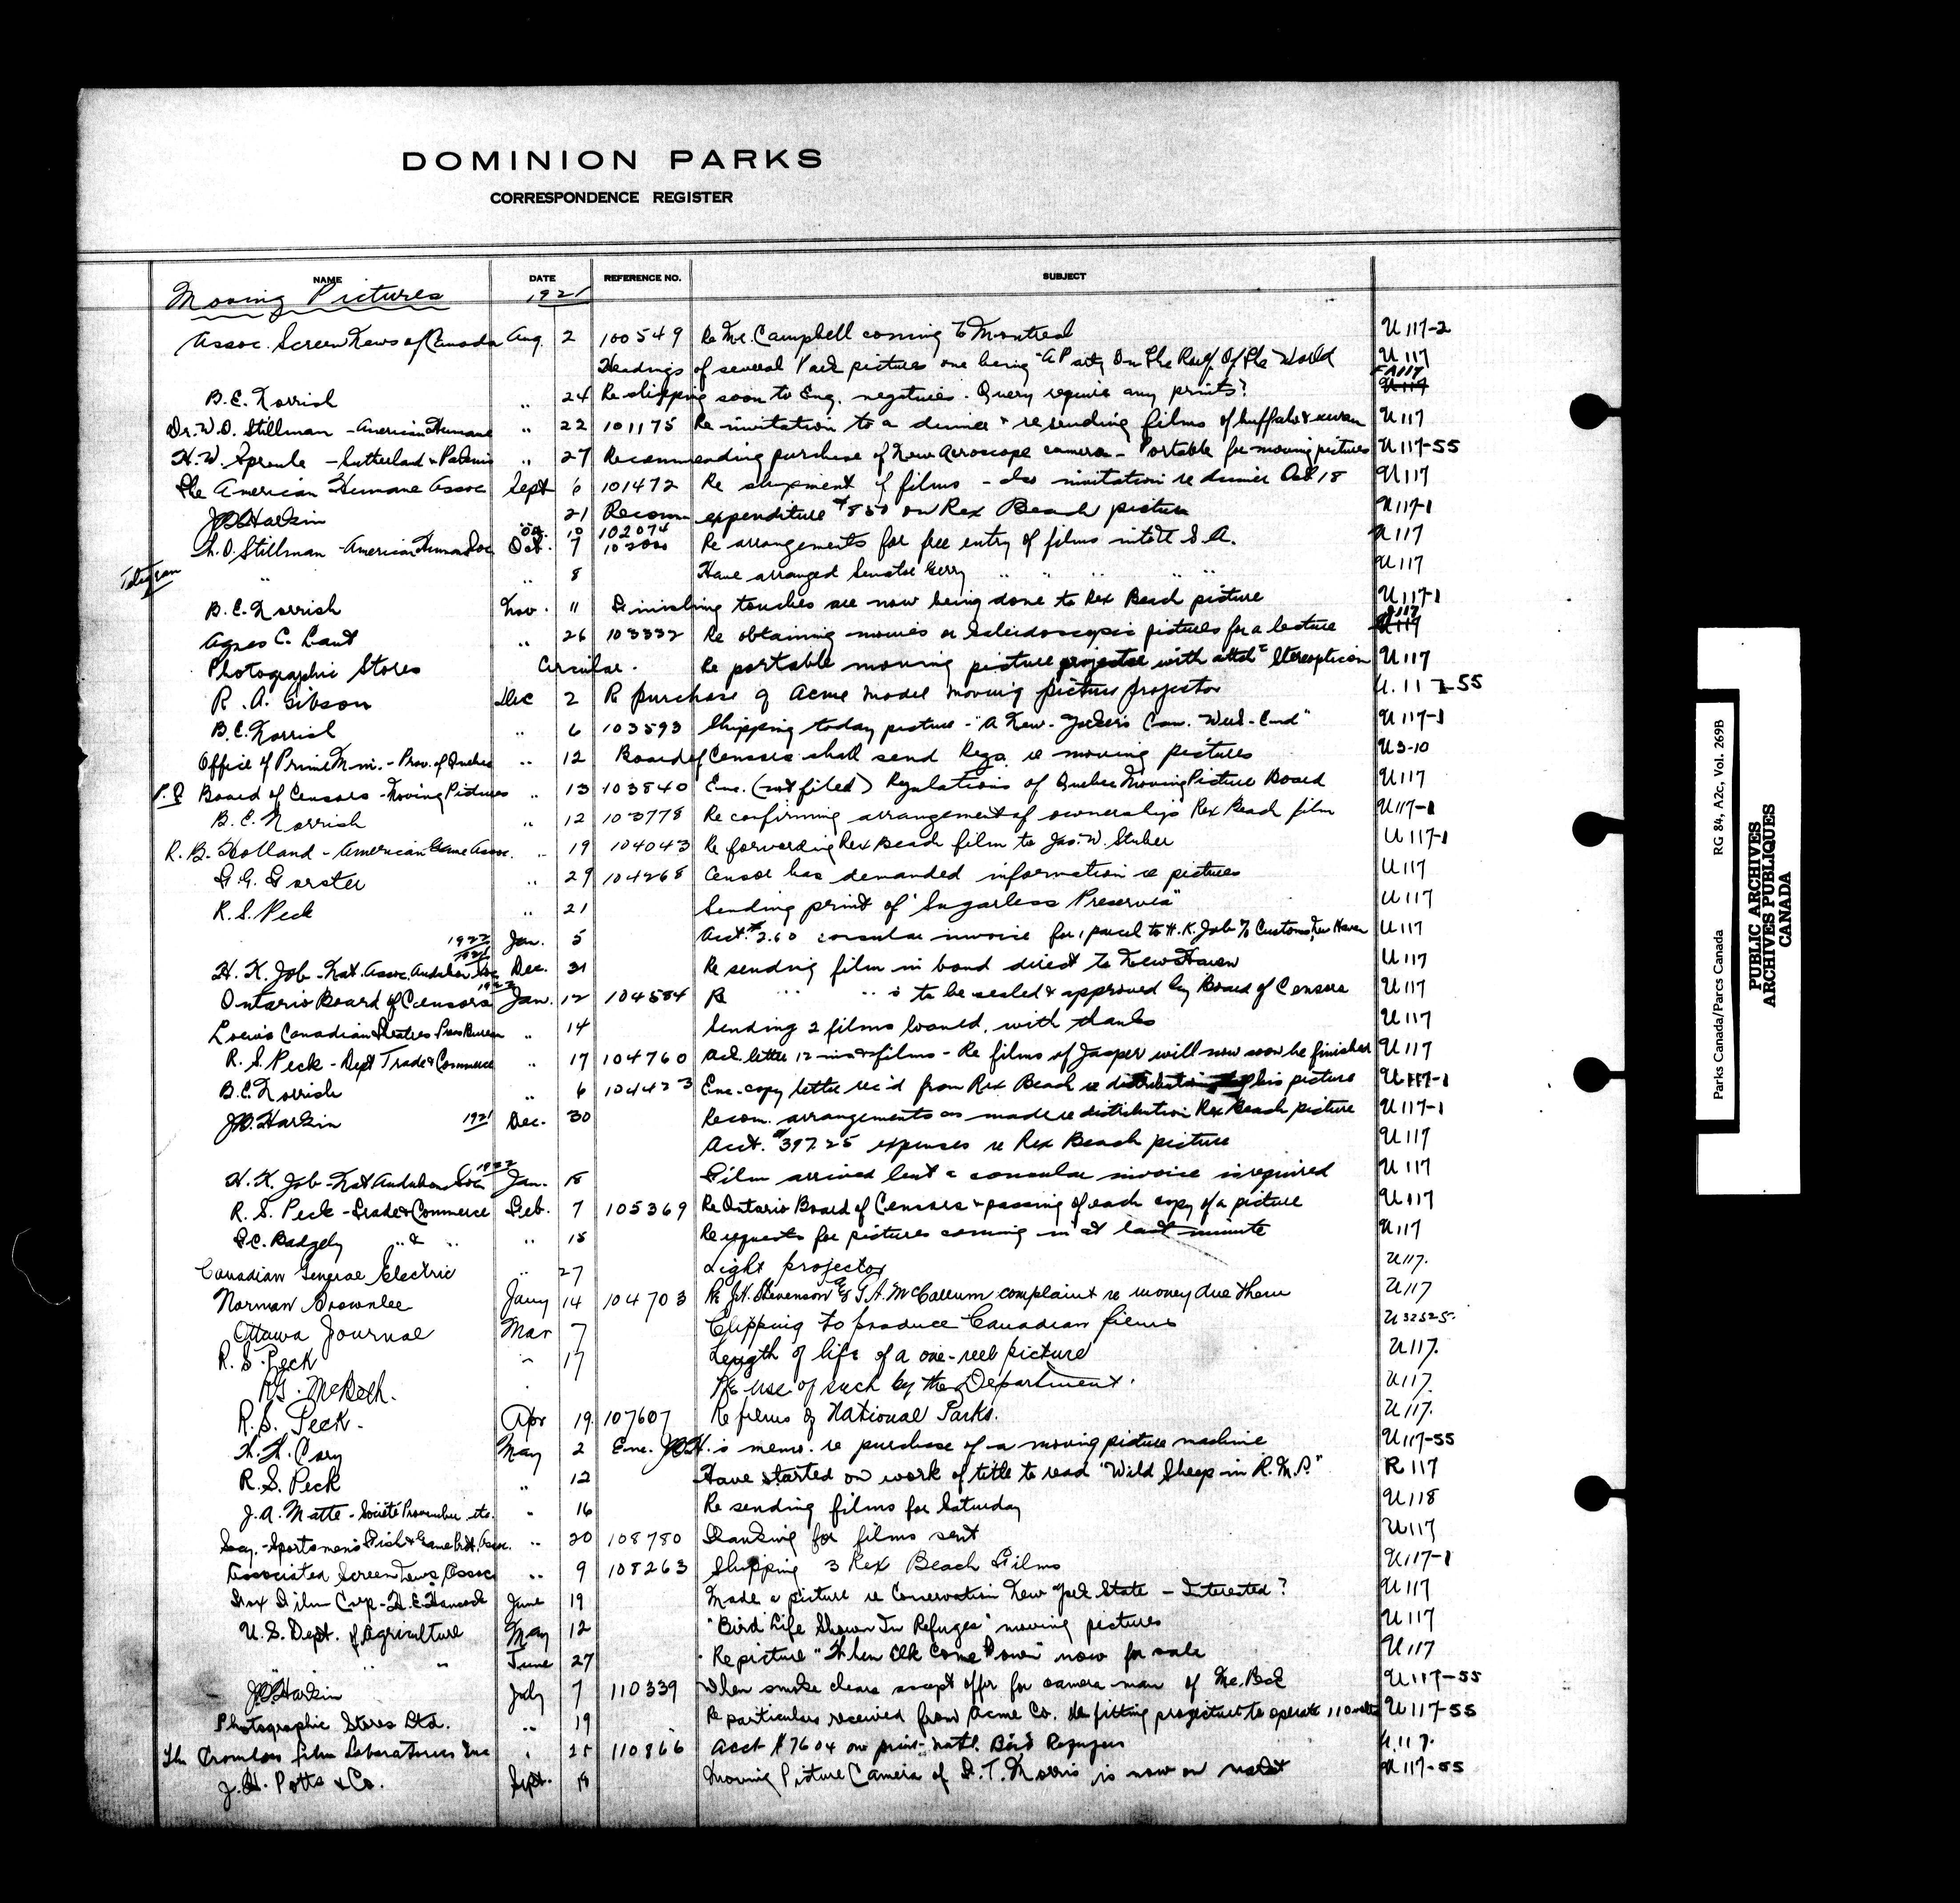 DOMINION PARKS
CORRESPONDENCE REGISTER
NAME DATE REFERENCE NO. SUBJECT
Moving Pictures 1921
Assoc. Screen News of Canada Aug. 2 100549 Re Mr. Campbell coming to Montreal U 117-2
Headings of several Park picture one being "A Party On The Roof Of The World U 117
FA117
B.E. Norrish " 24 Re shipping soon to Eng. negatives. Query require any prints? U 117
Dr. W.O. Stillman - American Humane " 22 101175 Re invitation to a dinner & re sending films of buffalo & U 117
H.W. Sproule - Sutherland & " 27 Recommending purchase of New Aeroscope camera - Portable for moving pictures U 117-55
The American Humane Assoc Sept 6 101472 Re shipment of films - Also invitation re dinner Oct 18 U 117
JB Harkin 21 Recom expenditure $850 on Rex Beach picture U 117-1
Oct. 10 102074
W.O. Stillman - American Humane Soc Oct. 7 102000 Re arrangements for free entry of films into U.S.A. U 117
Telegram " " 8 Have arranged Senator Gerry " " " " " U 117
B.E. Norrish Nov. 11 Finishing touches are now being done to Rex Beach picture U 117-1
Agnes C. Laut " 26 103332 Re obtaining movies or kaleidoscopic pictures for a lecture U 117
Photographic Stores Circular. Re portable moving picture projector with attd. Stereopticon U 117
R. A. Gibson Dec 2 Re purchase of Acme Model moving picture projector U. 117-55
B.E. Norrish " 6 103593 Shipping today picture - "A New-Yorker's Can. Week-End" U 117-1
Office of Prime Min. - Prov. of Quebec " 12 Board of Censors shall send Regs. re moving pictures U3-10
P.Q. Board of Censors - Moving Pictures " 13 103840 Enc. (not filed) Regulations of Quebec Moving Picture Board U 117
B.E. Norrish " 12 103778 Re confirming arrangement of ownership Rex Beach film U 117-1
R.B. Holland - American Game Assoc. " 19 104043 Re forwarding Rex Beach film to Jas. W. Stuber U 117-1
" 29 104268 Censor has demanded information re pictures U 117
R.S. Peck " 21 Sending print of "Sugarless Preserves" U 117
1922 Jan. 5 Acct. $2.60 consular invoice for 1 parcel to H.K. Job c/o Customs, New Haven U 117
H.K. Job - Nat. Assoc. Audubon Soc. 1921 Dec. 31 Re sending film in bond direct to New Haven U 117
Ontario Board of Censors 1922 Jan. 12 104584 Re " " is to be sealed & approved by Board of Censors U 117
Loew's Canadian Theatres Press Bureau " 14 Sending 2 films loaned, with thanks U 117
R.S. Peck - Dept Trade & Commerce " 17 104760 Ack. letter 12 inst & films - Re films of Jasper will now soon be finished U 117
B.E. Norrish " 6 104423 Enc. copy letter rec'd from Rex Beach re distribution of his picture U 117-1
JB. Harkin 1921 Dec. 30 Recom. arrangements as made re distribution Rex Beach picture U 117-1
Acct. $397.25 expenses re Rex Beach picture U 117
H.K. Job - Nat Audubon Soc 1922 Jan. 18 Film arrived but a consular invoice is required U 117
R.S. Peck - Trade & Commerce Feb. 7 105369 Re Ontario Board of Censors & passing of each copy of a picture U 117
F.C. Badgely " & " " 15 Re requests for pictures coming in at last minute U 117
Canadian General Electric " 27 Light projector U117.
Norman Brownlee Jany 14 104703 Re J.H. Stevenson & T.A. McCallum complaint re money due them U117
Ottawa Journal Mar 7 Clipping to produce Canadian films U3252-5.
R.S. Peck " 17 Length of life of a one-reel picture U117.
R.G. McBeth. Re use of such by the Department. U117.
R.S. Peck. Apr 19. 107607 Re films of National Parks. U117.
H.H. Cory May 2 Enc. JBH.'s memo. re purchase of a moving picture machine U117-55
R.S. Peck " 12 Have started on work of title to read "Wild Sheep in R.M.P." R 117
J.A. Matte - Société Provancher etc. " 16 Re sending films for Saturday U118
Secy. - Sportsmen's Fish & Game Assoc. " 20 108780 Thanking for films sent U117
Associated Screen News Assoc " 9 108263 Shipping 3 Rex Beach Films U117-1
Fox Film Corp - H.E. Hancock June 19 Made a picture re Conservation New York State - Interested? U117
U.S. Dept. of Agriculture May 12 "Bird Life Shown In Refuges" moving pictures U117
" " " June 27 Re picture "When Elk Come Down" now for sale U117
JB Harkin July 7 110339 When smoke clears accept offer for camera man of Mr. Peck U117-55
Photographic Stores Ltd. " 19 Re particulars received from Acme Co. re fitting projector to operate 110 volts U117-55
The Cromlow Film Laboratories Inc " 25 110866 Acct $76.04 one print Natl. Bird Refuges U.117.
J.H. Potts & Co. Sept. 18 Moving Picture Camera of T. Morris is now on market U117-55
Parks Canada/Parcs Canada RG 84, A2c, Vol. 269B
PUBLIC ARCHIVES
ARCHIVES PUBLIQUES
CANADA